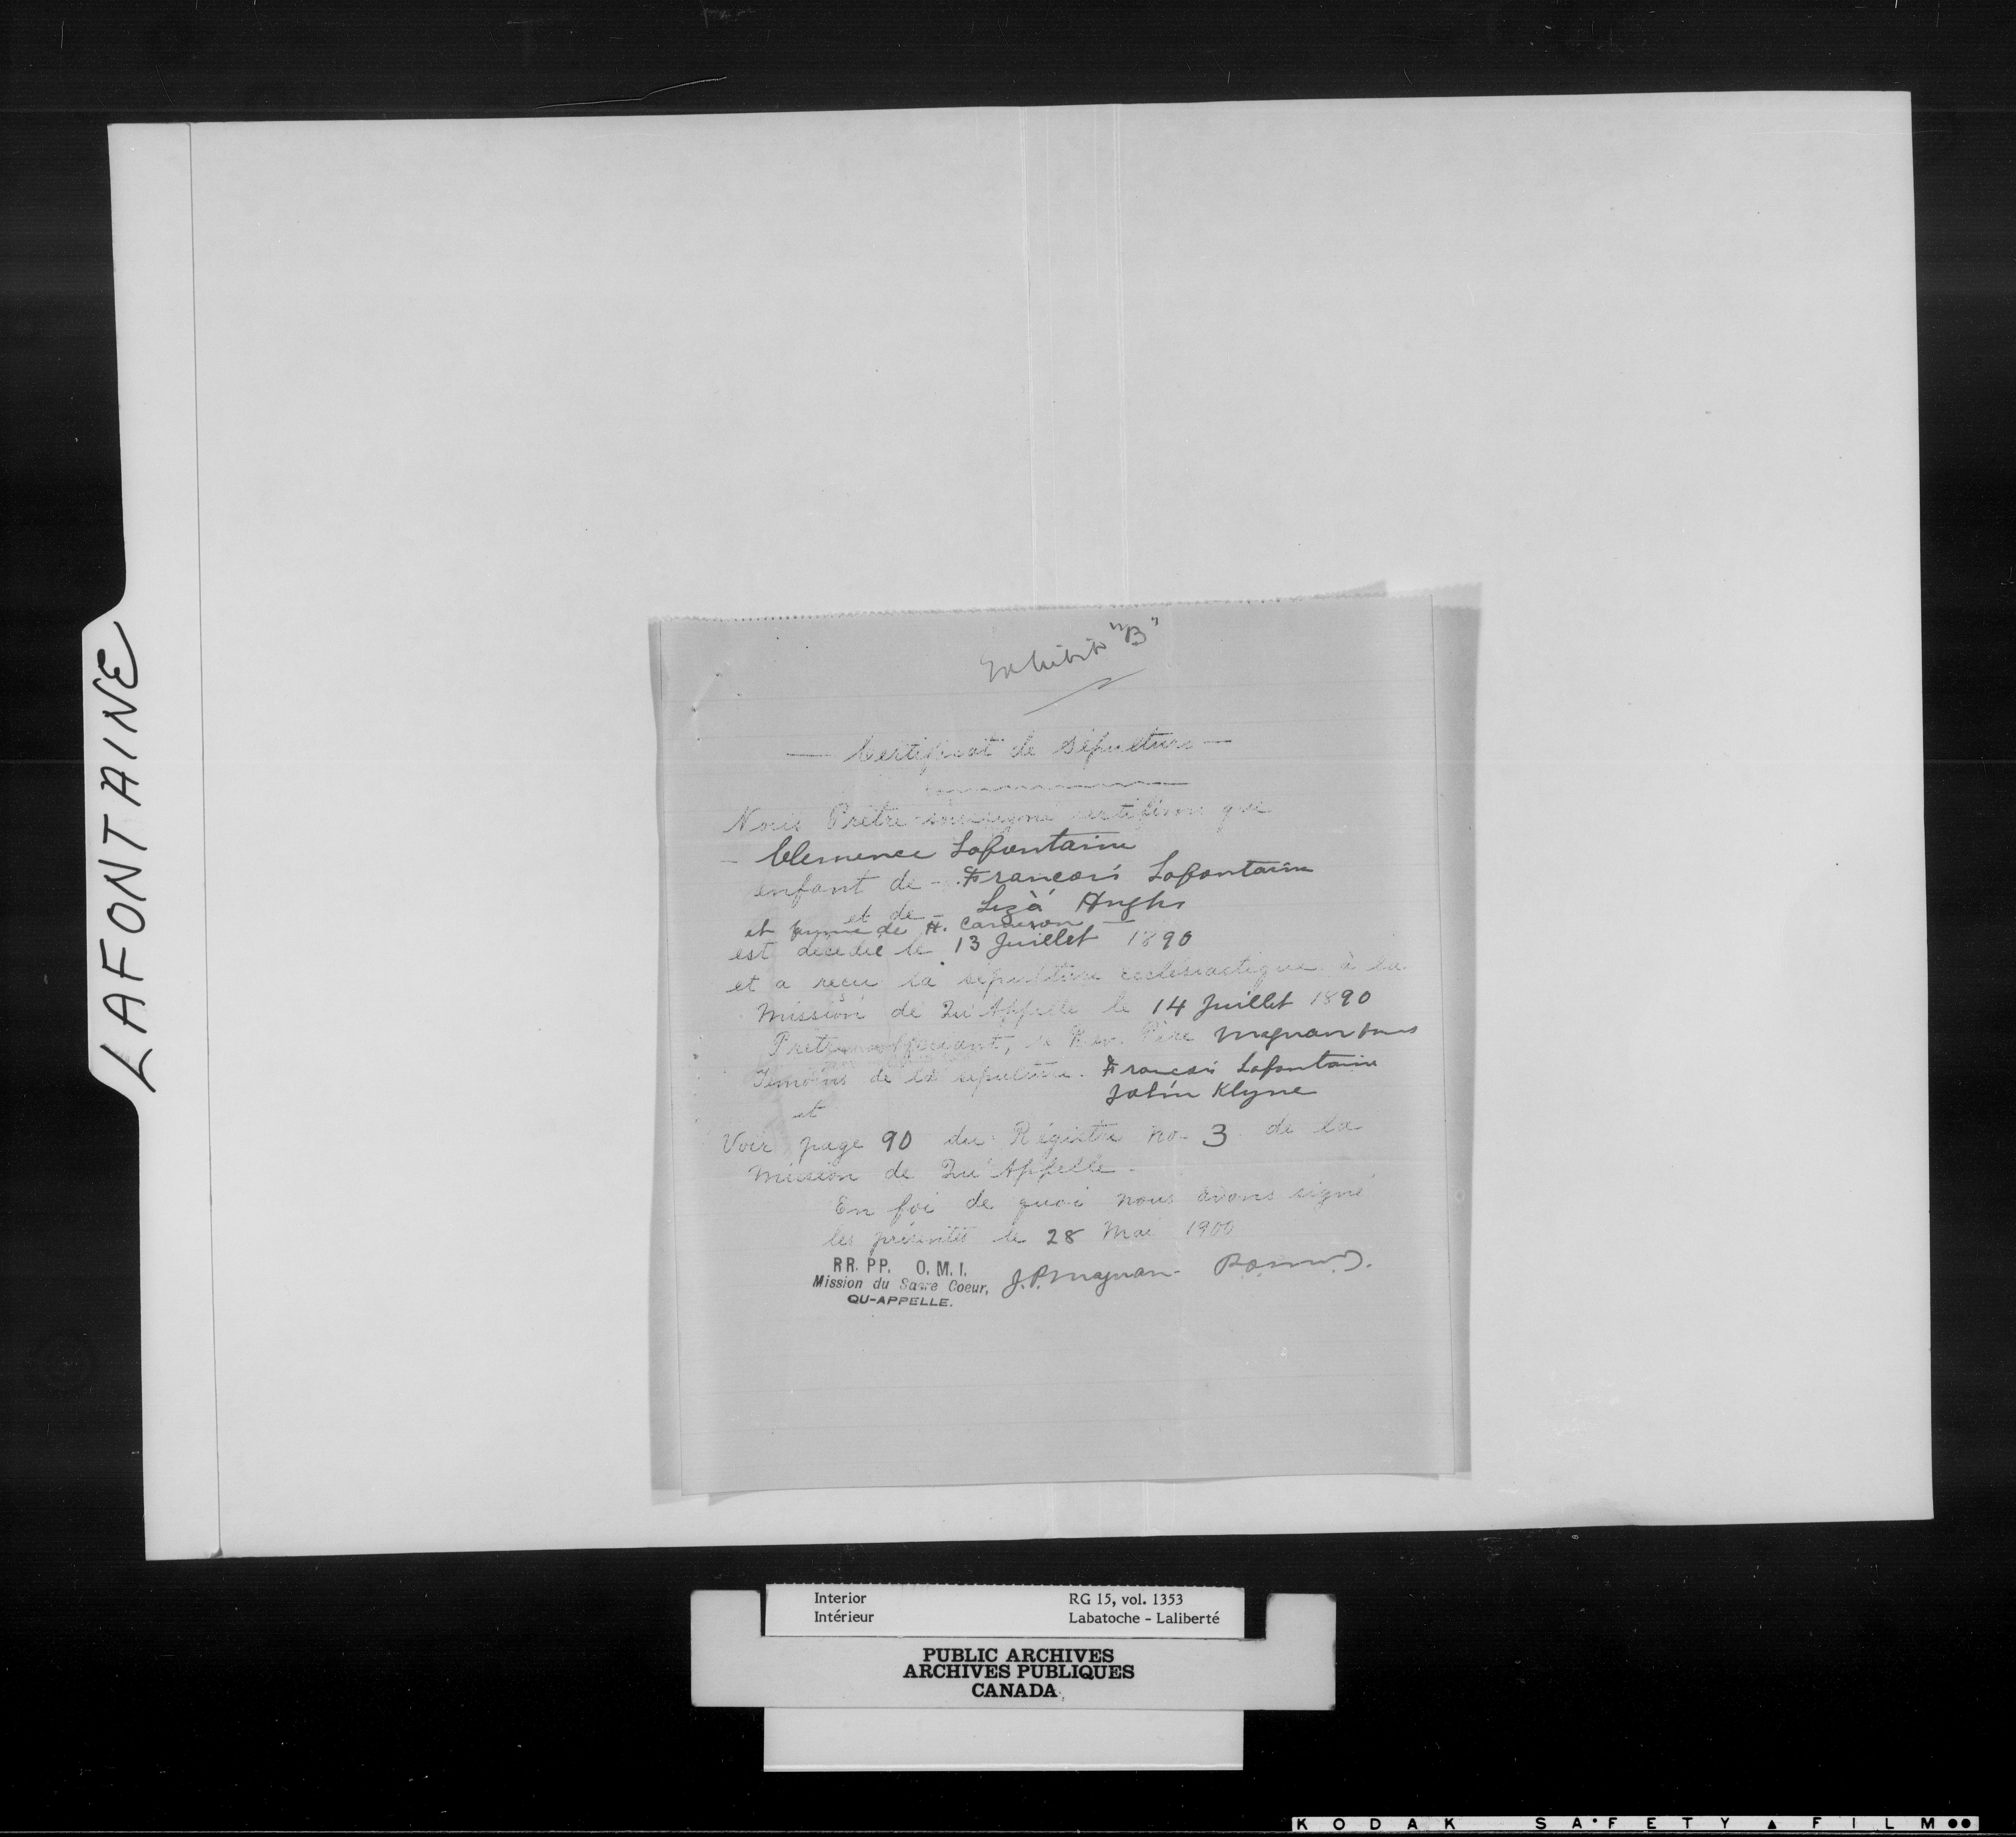 LAFONTAINE
Exhibit "B"
— Certificat de Sépulture —
Nous Prêtre soussigné certifions que
- Clemence Lafontaine
enfant de - Francois Lafontaine
et de - Liza Hughs
et femme de H. Cameron —
est décédée le 13 Juillet 1890
et a reçu la sépulture ecclésiastique à la
Mission de Qu'Appelle le 14 Juillet 1890
Prêtre officiant, le Rev. Père Magnan
Témoins de la sépulture. Francois Lafontaine
John Klyne
et
Voir page 90 du Régistre no. 3 de la
Mission de Qu'Appelle.
En foi de quoi nous avons signé
les présentes le 28 Mai 1900
RR. PP. O. M. I.
Mission du Sacre Coeur,
QU-APPELLE.
J.P. Magnan
Interior RG 15, vol. 1353
Intérieur Labatoche - Laliberté
PUBLIC ARCHIVES
ARCHIVES PUBLIQUES
CANADA
KODAK SAFETY FILM